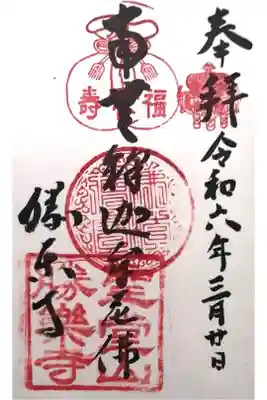 奉拝 令和六年三月廿日
南無釋迦牟尼佛
勝楽寺
福壽
勝樂寺